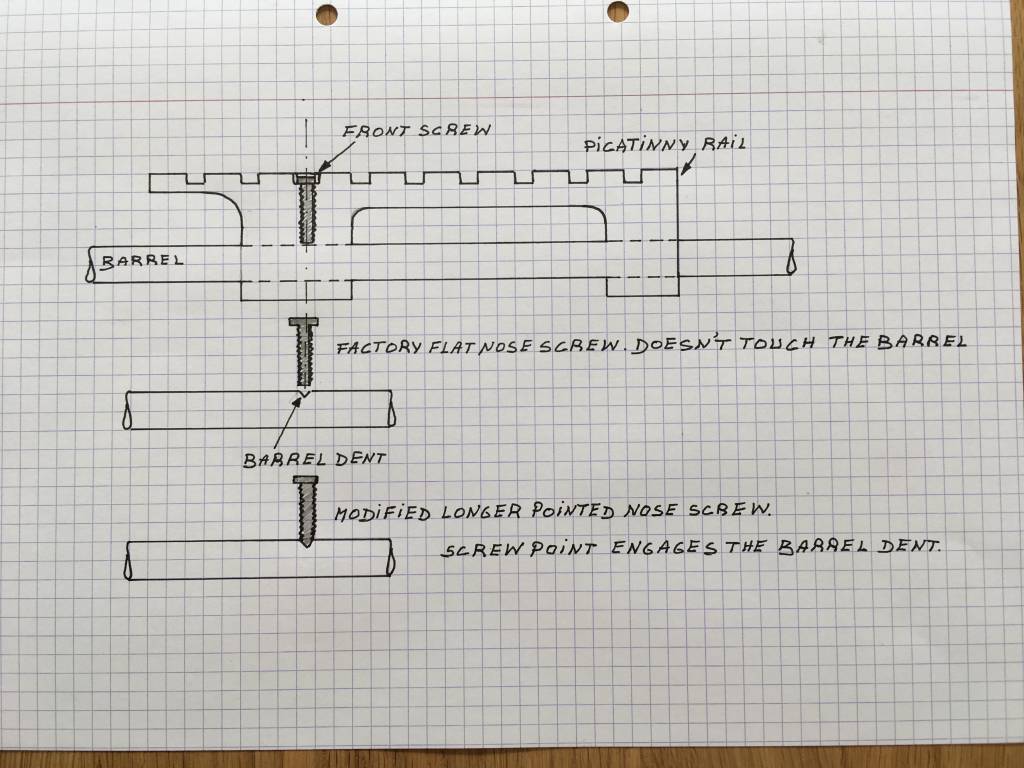 FRONT SCREW
PiCATiNNY RAiL
BARREL
FACTORY FLAT NOSE SCREW. DOESN'T TOUCH THE BARREL
BARREL DENT
MODiFiED LONGER POiNTED NOSE SCREW.
SCREW POiNT ENGAGES THE BARREL DENT.